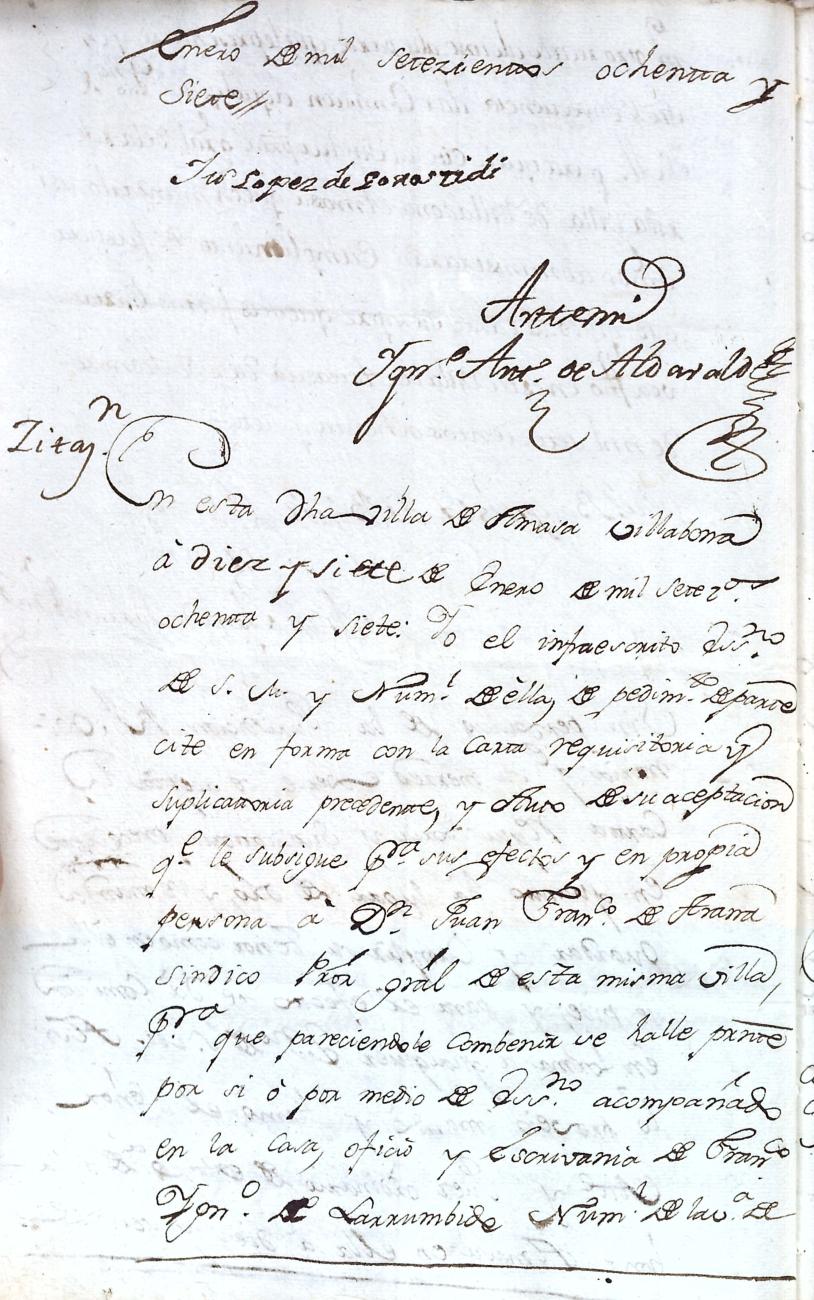 Enero de mil setezientos ochentta y
Siete//
Lopez de Gorostidi
Antemi
Ygn.º Antt.º de Aldavalde
Zitaz.n
En esta dha villa de Amasa Villabona
à diez y siete de Enero de mil setez.os
ochentta y siete: Yo el infraescrito Ess.no
de S. M. y Num.l de èlla, de pedim.to de parte
cite en forma con la Carta requisitoria y
suplicatoria precedente, y Auto de su aceptacion
q.e le subsigue p.ra sus efectos y en propia
persona à D.n Juan Fran.co de Arana
sindico Prõr grãl de esta misma Villa,
p.ra que pareciendole combenir se halle prnte
por si ò por medio de Ess.no acompañado
en la Casa, oficio y Escrivania de Fran.co
Ygn.o de Larrumbide Num.l de la v.a de